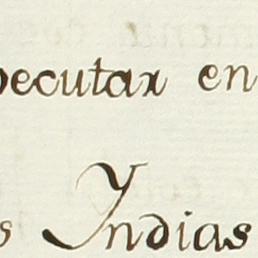 pecutar en
s Yndias